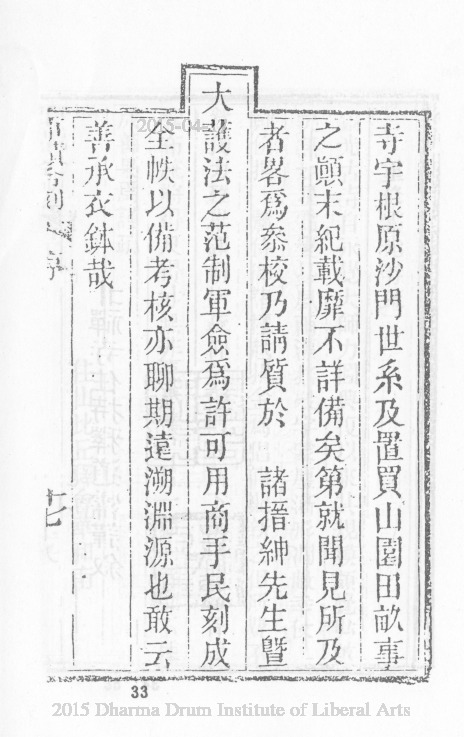 寺宇根原沙門世系及置買山園田畝事
之顚末紀載靡不詳備矣第就聞見所及
者畧爲叅校乃請質於 諸搢紳先生曁
大護法之范制軍僉爲許可用商手民刻成
全帙以備考核亦聊期遠溯淵源也敢云
善承衣鉢哉
序
十七
33
2015-04
2015 Dharma Drum Institute of Liberal Arts